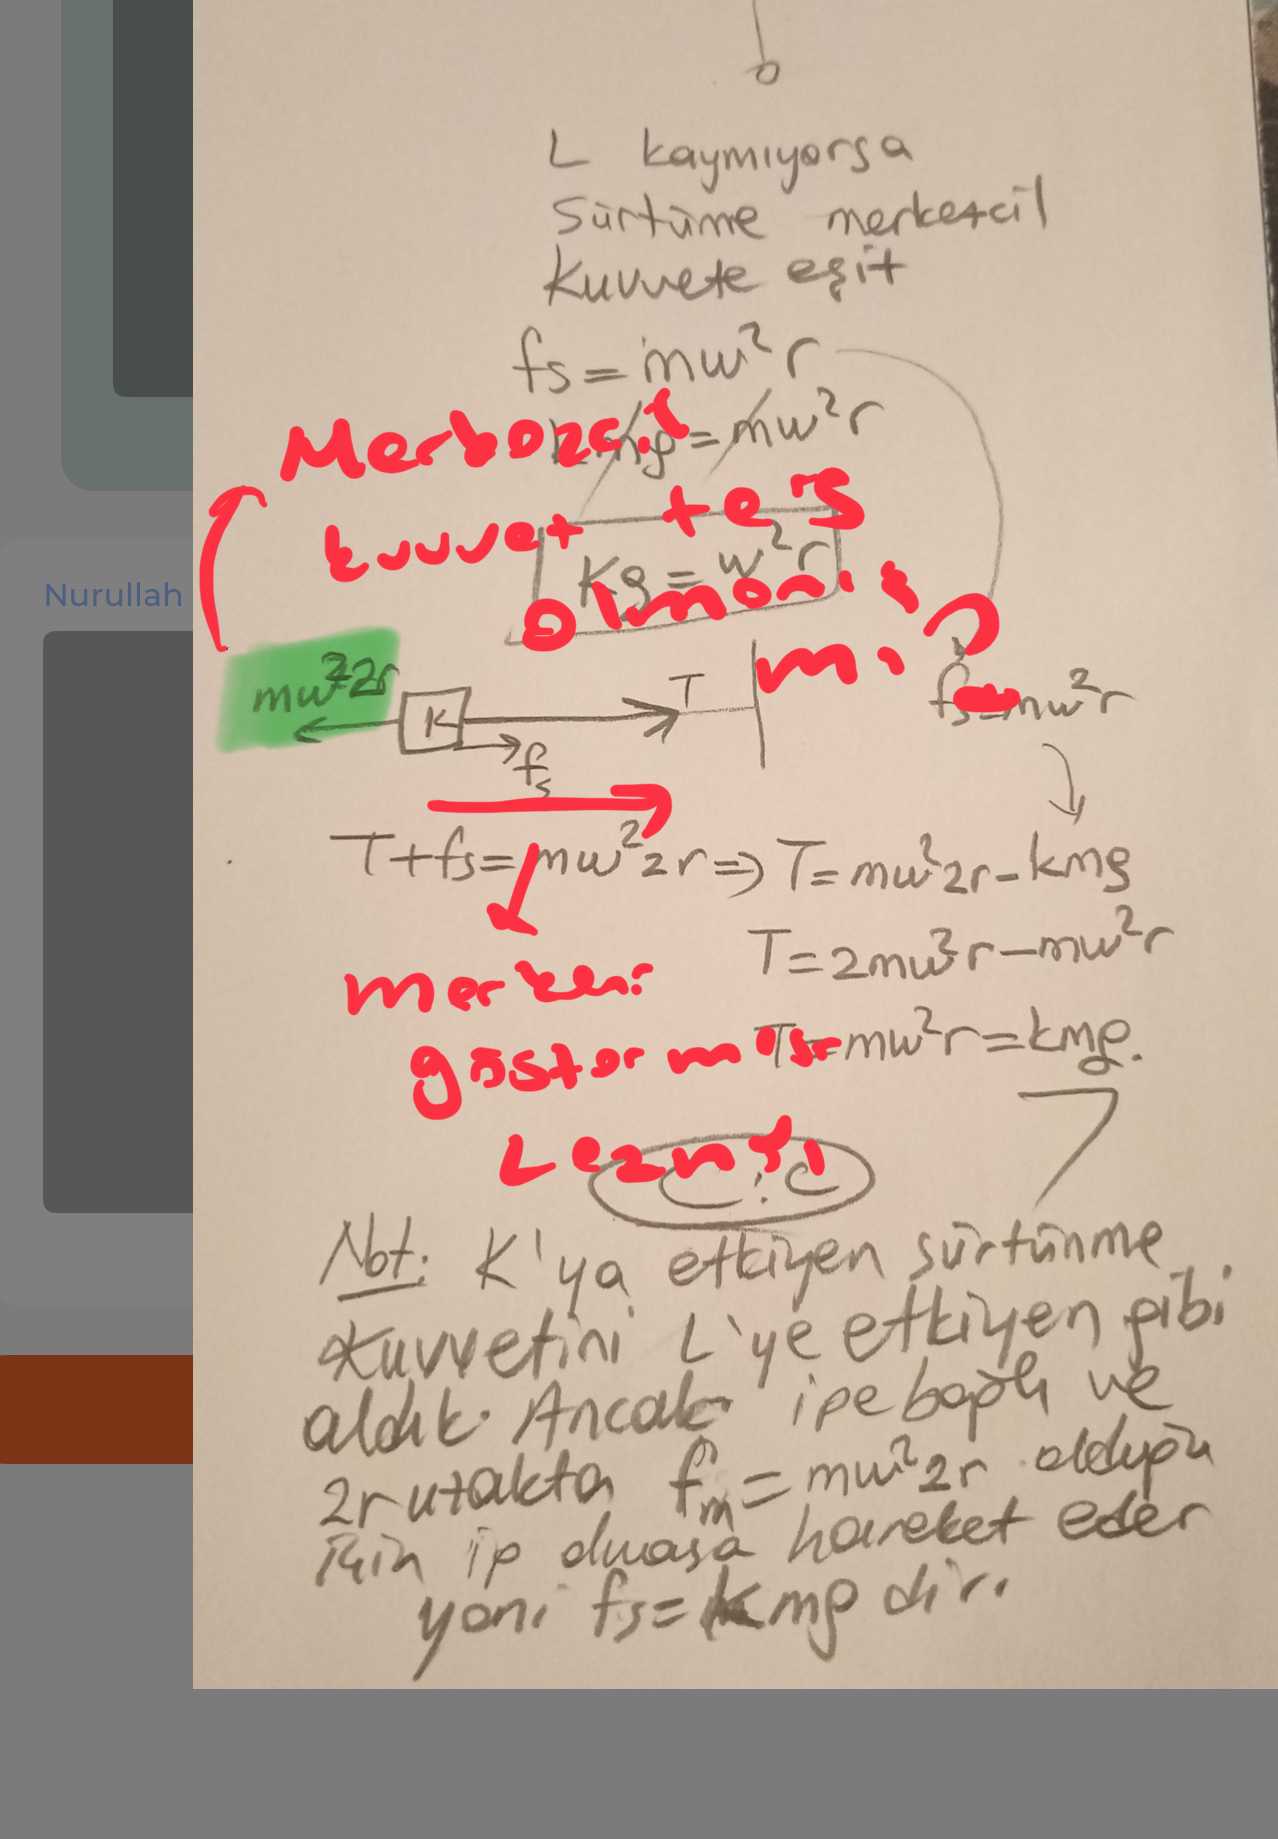 L kaymıyorsa
Sürtüme merkezcil
kuvvete eşit
fs = mw²r
kmg = mw²r
Merkezcil
kuvvet ters
kg = w²r
olmalı
mı?
Nurullah
mw²2r
K
T
fs
fs=mw²r
T+fs=mw²2r ⇒ T=mw²2r-kmg
T=2mw²r-mw²r
merkezi
T=mw²r=kmg.
göstermesi
Lazım
Not: K'ya etkiyen sürtünme
kuvvetini L'ye etkiyen gibi
aldık. Ancak ipe bağlı ve
2r uzakta fm = mw²2r olduğu
için ip olmasa hareket eder
yani fs = kmg dir.